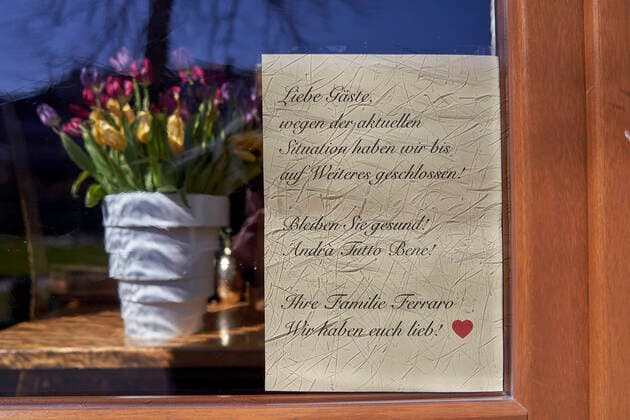 Liebe Gäste,
wegen der aktuellen
Situation haben wir bis
auf Weiteres geschlossen!
Bleiben Sie gesund!
Andrà Tutto Bene!
Ihre Familie Ferraro
Wir haben euch lieb!